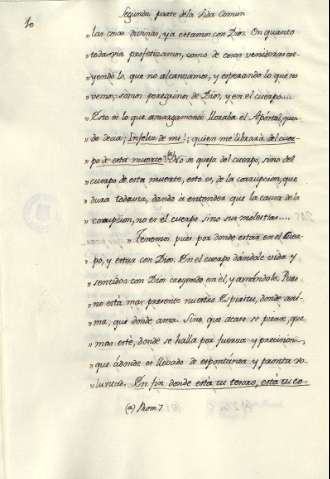 10
Segunda parte de la Vida Comun
"las cosas divinas, ya estamos con Dios. En quanto
"todavia profetizamos, como de cosas venideras cre-
"yendo lo que no alcanzamos, y esperando lo que no
"vemos; somos peregrinos de Dios, y en el cuerpo.
"Esto es lo que amargamente lloraba el Apostol, quan-
do decia: Infeliz de mi!; quien me librará del cuer-
"po de esta muerte? (a) No se queja del cuerpo, sino del
"cuerpo de esta muerte, esto es, de la corrupcion, que
"dura todavia, dando à entender que la causa de la
"corrupcion, no es el cuerpo sino sus molestias....
"Tenemos pues por donde estar en el Cuer-
"po, y estar con Dios. En el cuerpo dandole vida y
"sentidos con Dios creyendo en él, y amandole. Pues
"no está mas presente nuestro Espiritu, donde ani-
"ma, que donde ama. Sino, que acaso se piense, que
"mas esté, donde se halla por fuerza y precision,
"que àdonde es llevado de espontánea y pronta vo-
"luntad. En fin donde está tu tesoro, está tu co-
(a) Rom 7.